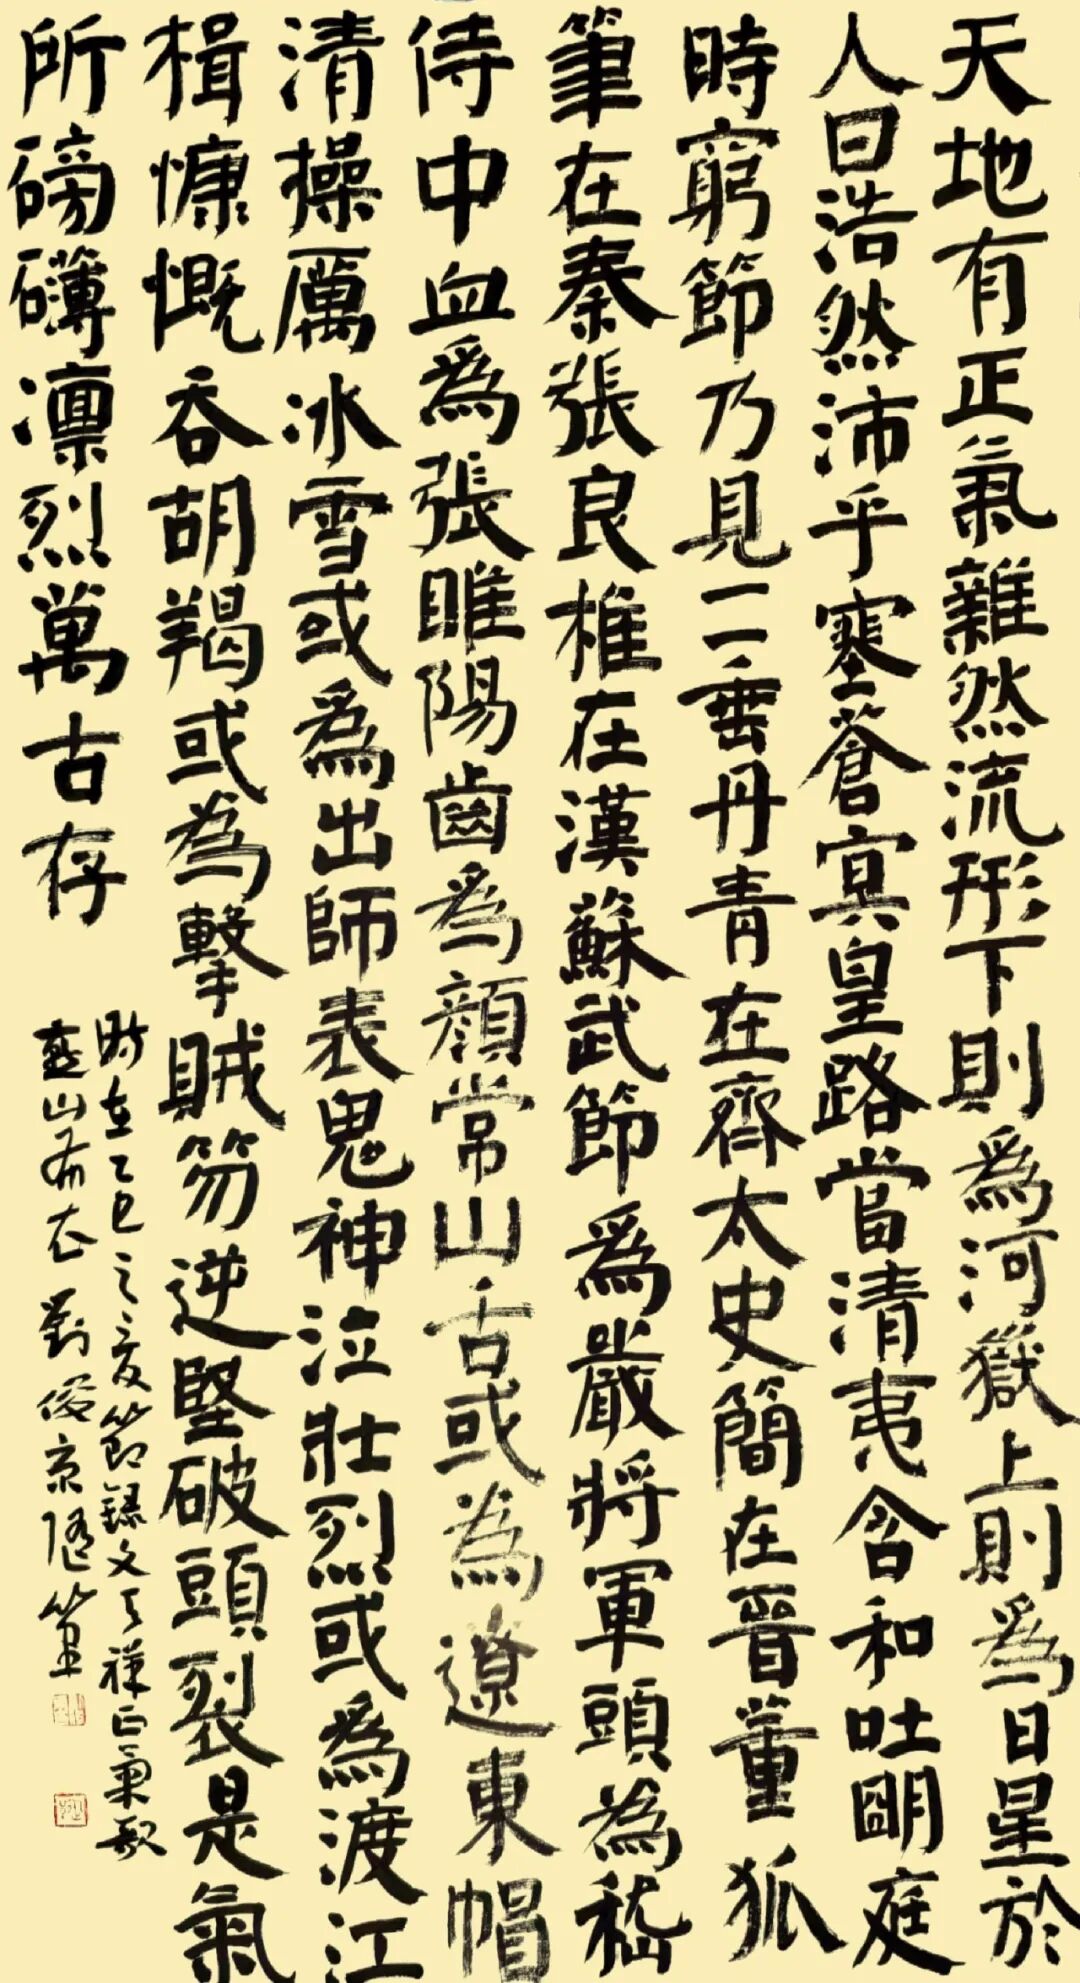 天地有正氣雜然流形下則為河嶽上則為日星於
人曰浩然沛乎塞蒼冥皇路當清夷含和吐明庭
時窮節乃見一一垂丹青在齊太史簡在晉董狐
筆在秦張良椎在漢蘇武節為嚴將軍頭為嵇
侍中血為張睢陽齒為顏常山舌或為遼東帽
清操厲冰雪或為出師表鬼神泣壯烈或為渡江
楫慷慨吞胡羯或為擊賊笏逆豎破頭裂是氣
所磅礴凛烈萬古存
時在乙巳之夏節錄文天祥正氣歌
燕山布衣劉俊京隨筆